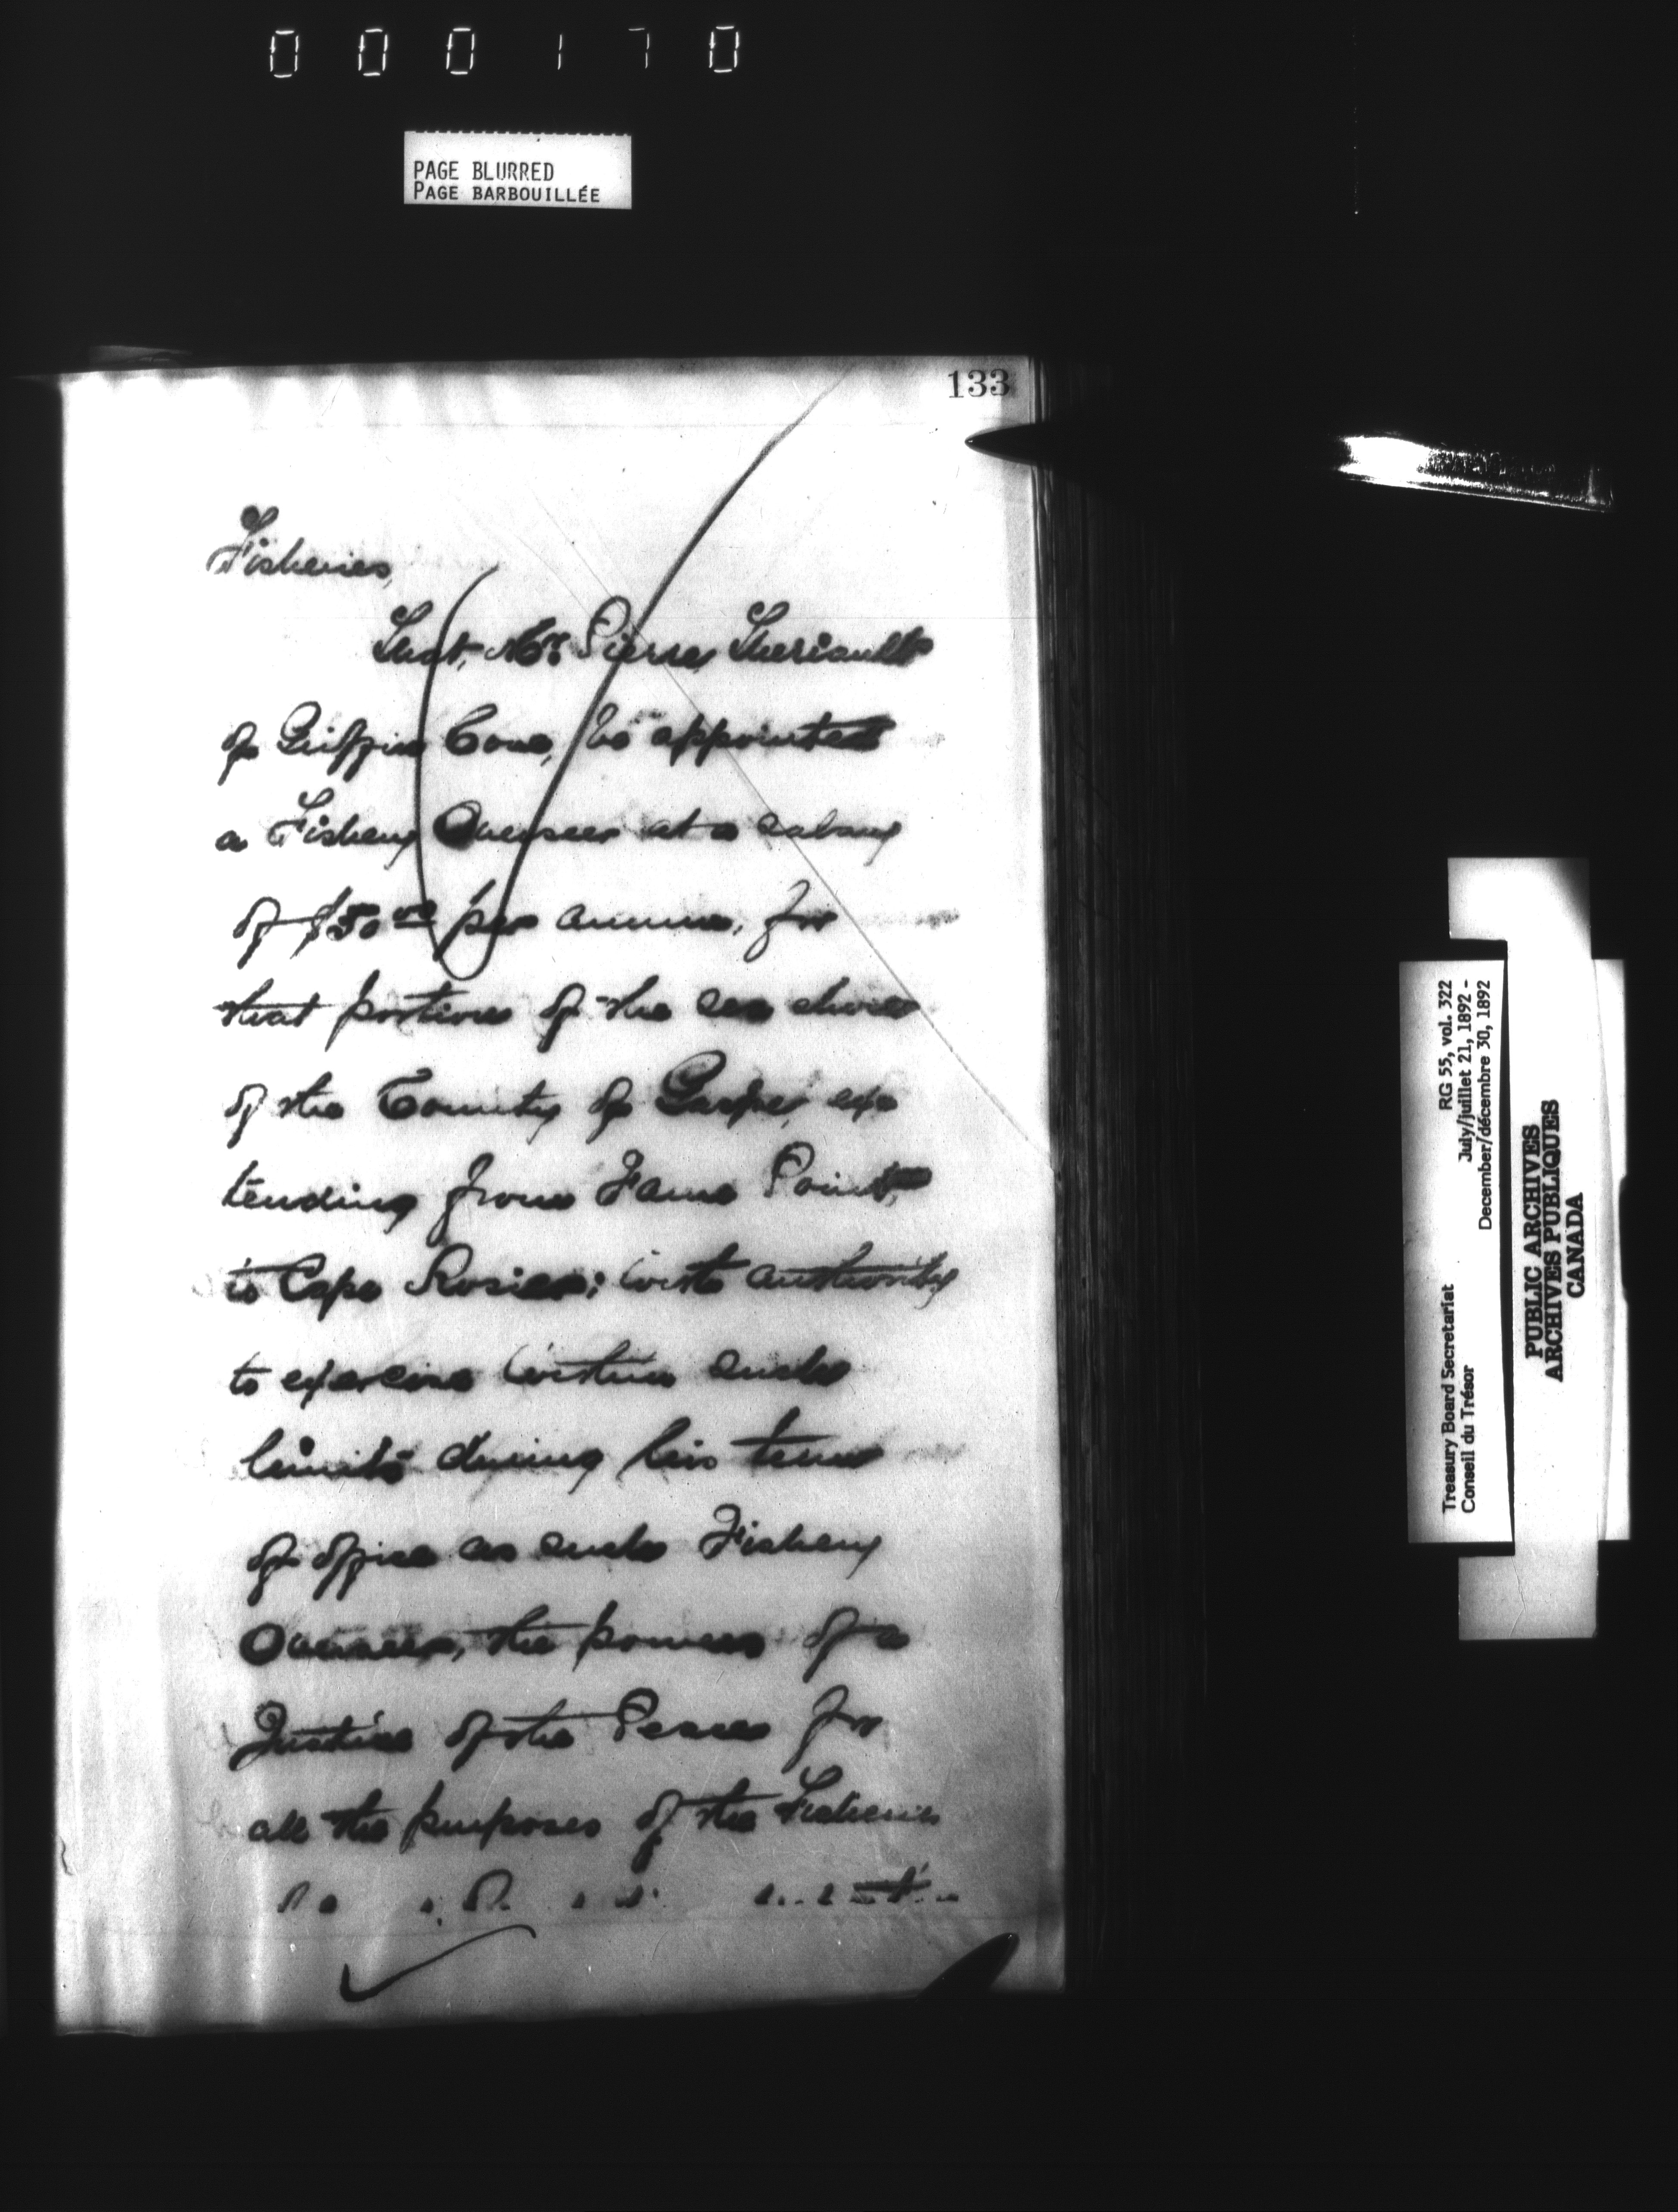 000170
PAGE BLURRED
PAGE BARBOUILLÉE
133
Fisheries,
That, Mr. Pierre Theriault
of Griffin Cove, be appointed
a Fishery Overseer at a salary
of $50.00 per annum, for
that portion of the sea shore
of the County of Gaspe, ex
tending from Fame Point,
to Cape Rosier; with authority
to exercise within such
limits during his term
of office as such Fishery
Overseer, the powers of a
Justice of the Peace for
all the purposes of the Fisheries
RG 55, vol. 322
July/juillet 21, 1892 -
December/décembre 30, 1892
Treasury Board Secretariat
Conseil du Trésor
PUBLIC ARCHIVES
ARCHIVES PUBLIQUES
CANADA